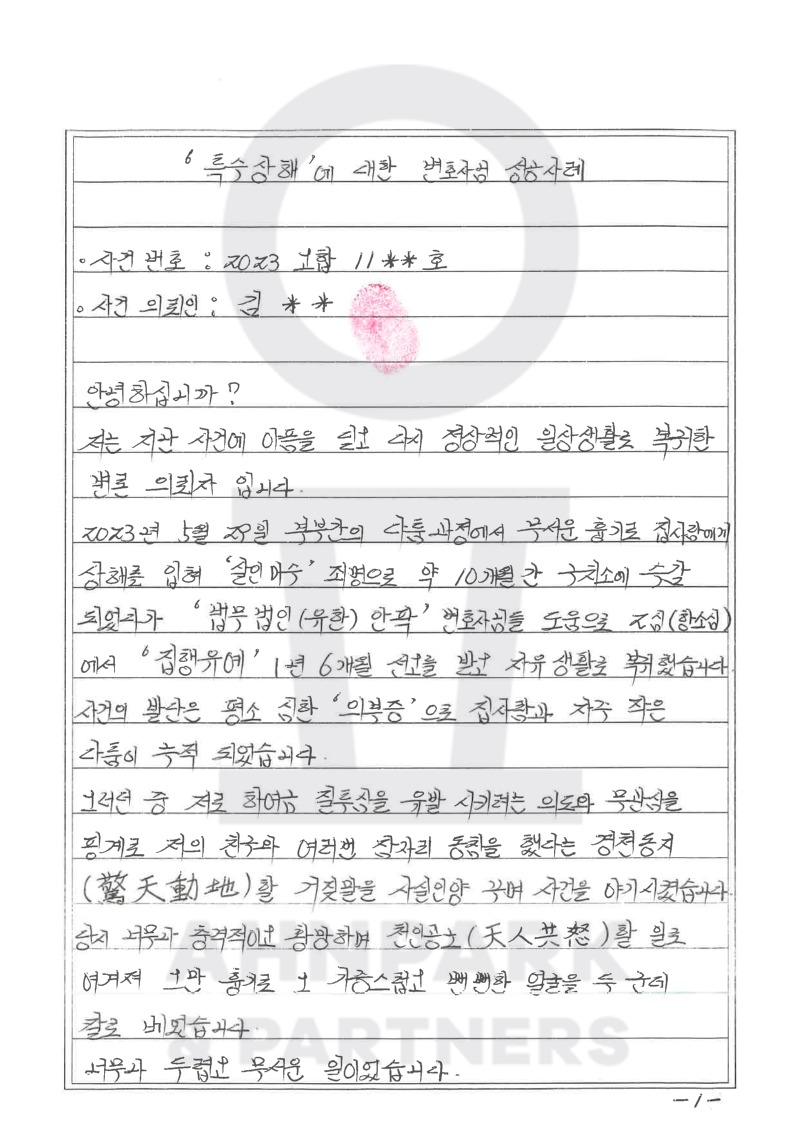 '특수상해'에 대한 변호사님 성공사례
◦ 사건 번호 : 2023 고합 11**호
◦ 사건 의뢰인 : 김 * *
안녕하십니까?
저는 지난 사건에 아픔을 딛고 다시 정상적인 일상생활로 복귀한
변론 의뢰자 입니다.
2023년 5월 29일 부부간의 다툼과정에서 무서운 흉기로 집사람에게
상해를 입혀 '살인미수' 죄명으로 약 10개월간 구치소에 수감
되었다가 '법무법인(유한) 안팍' 변호사님들 도움으로 2심(항소심)
에서 '집행유예' 1년 6개월 선고를 받고 자유 생활로 복귀했습니다.
사건의 발단은 평소 심한 '의부증'으로 집사람과 자주 작은
다툼이 누적 되었습니다.
그러던 중 저로 하여금 질투심을 유발 시키려는 의도와 무관심을
핑계로 저의 친구와 여러번 잠자리 동침을 했다는 경천동지
(驚天動地)할 거짓말을 사실인양 꾸며 사건을 야기시켰습니다.
당시 너무나 충격적이고 황망하며 천인공노(天人共怒)할 일로
여겨져 그만 흉기로 그 가증스럽고 뻔뻔한 얼굴을 두 군데
칼로 베었습니다.
너무나 두렵고 무서운 일이었습니다.
-1-
AHNPARK
& PARTNERS